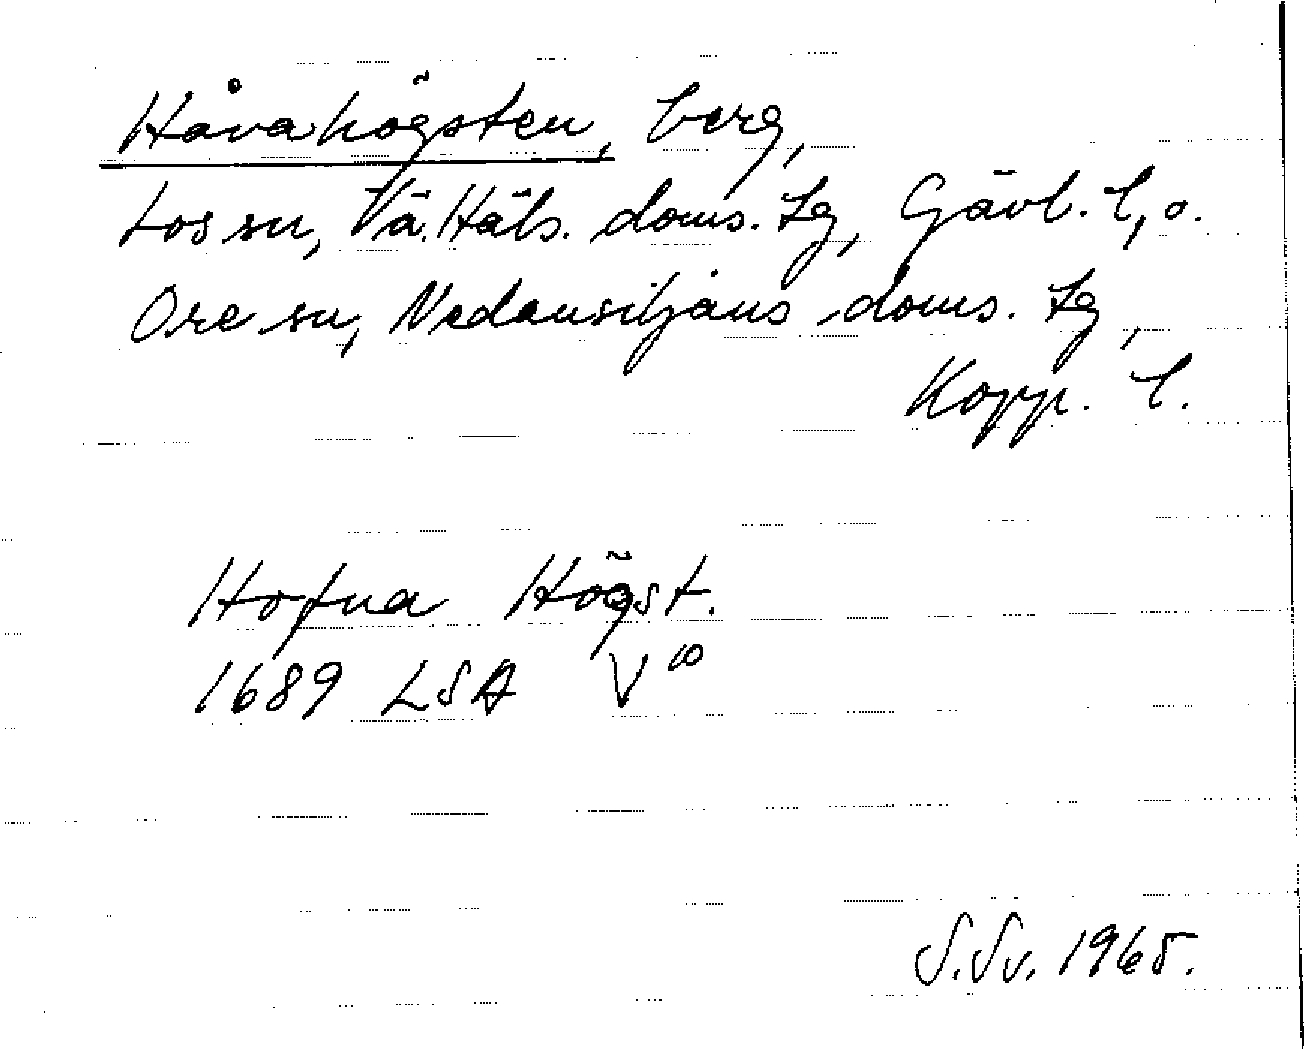 Håvahögsten, berg,
Los sn, Vä. Häls. doms. tg, Gävl. l, o.
Ore sn, Nedansiljans doms. tg,
Kopp. l.
Hofua Högst.
1689 LSA V
S.Sv. 1965.